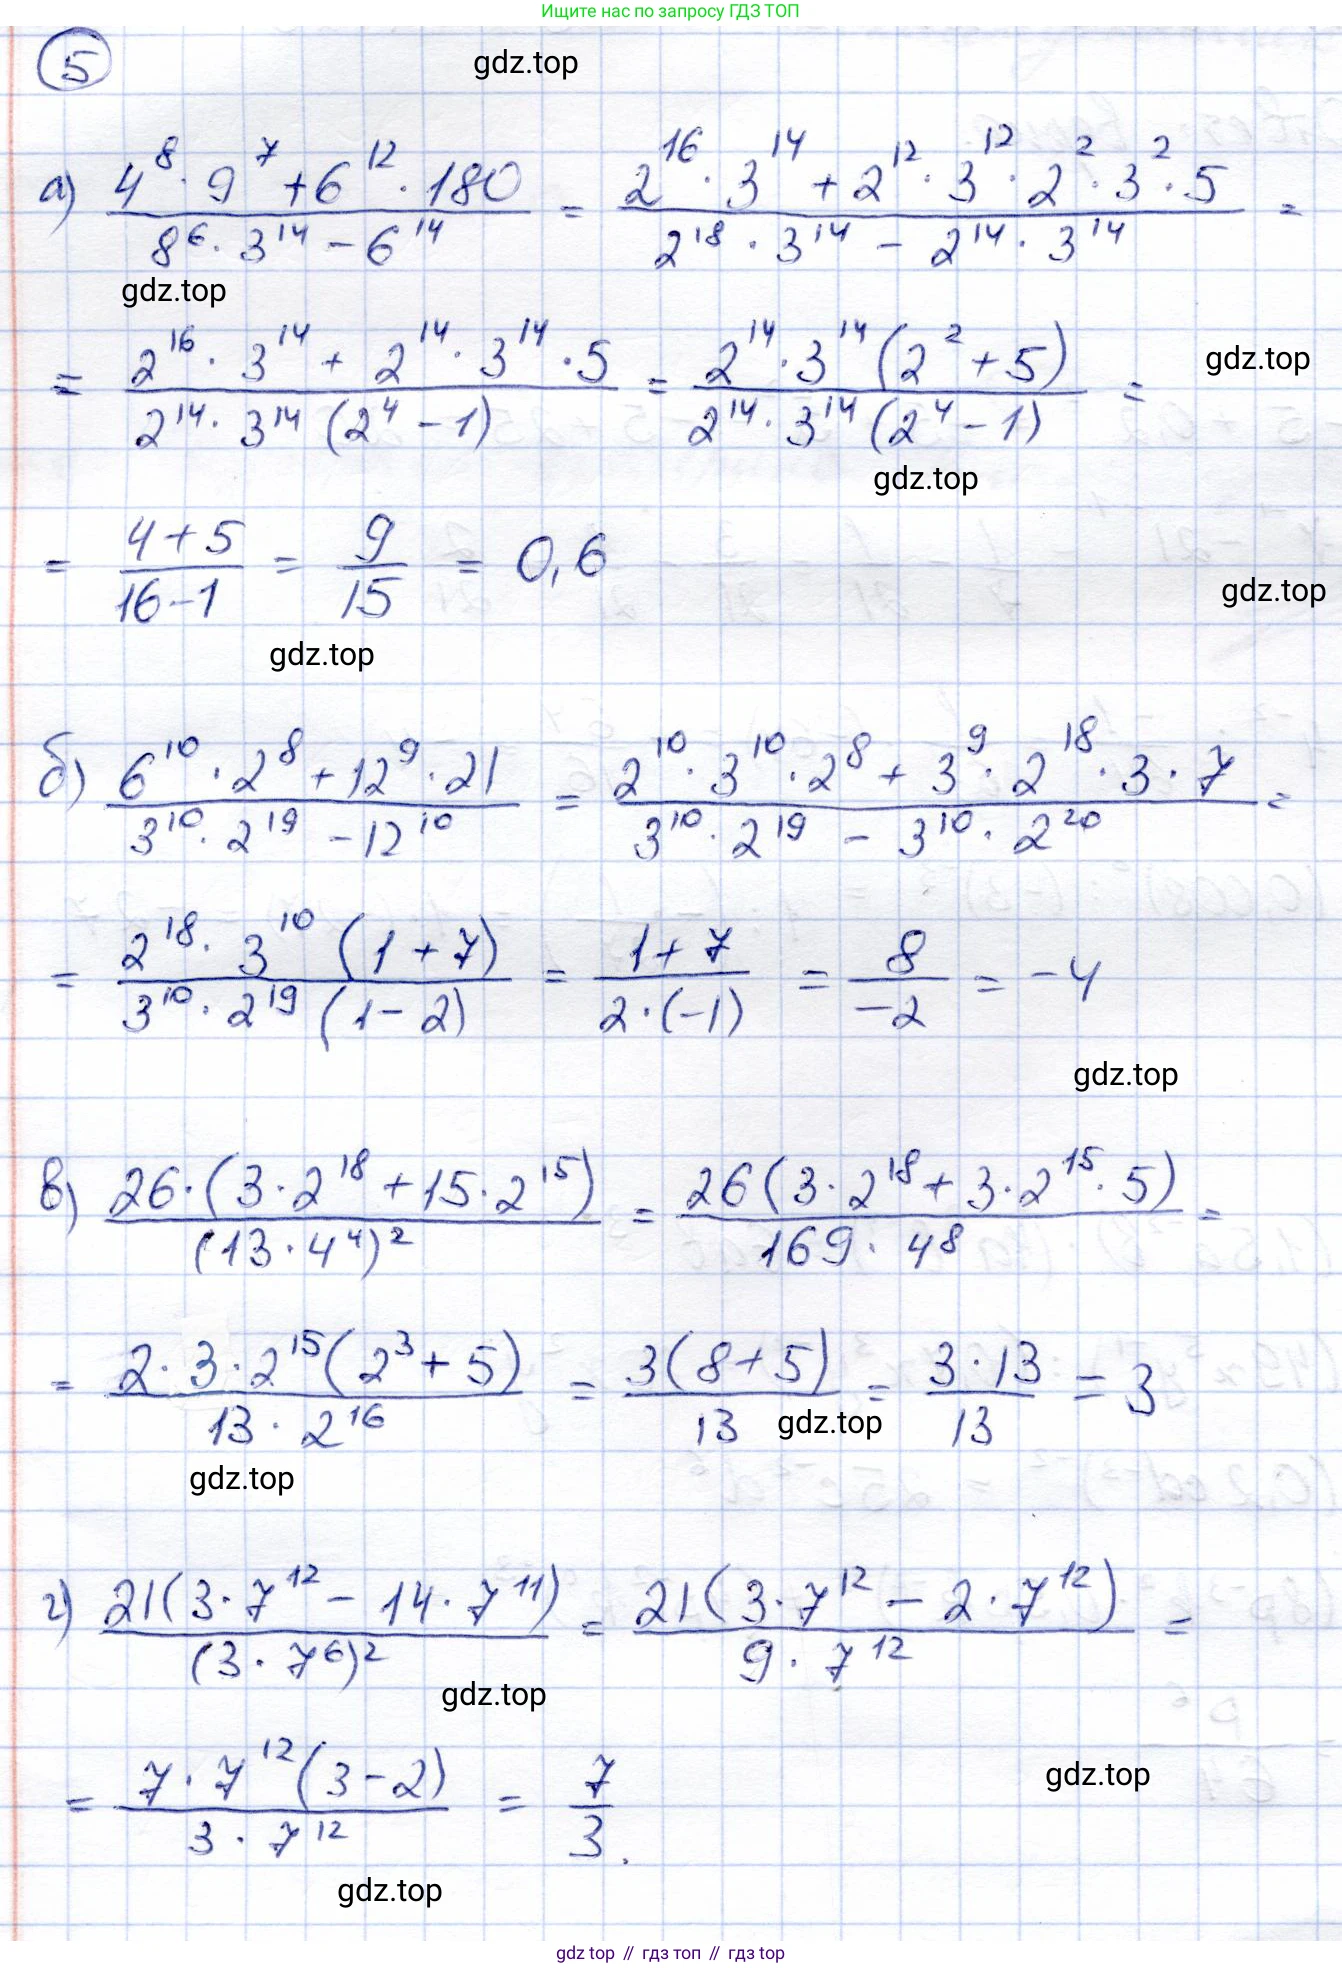 Ищите нас по запросу ГДЗ ТОП
5
gdz.top
а) (4^8 · 9^7 + 6^12 · 180)/(8^6 · 3^14 − 6^14) = (2^16 · 3^14 + 2^12 · 3^12 · 2^2 · 3^2 · 5)/(2^18 · 3^14 − 2^14 · 3^14) =
gdz.top
= (2^16 · 3^14 + 2^14 · 3^14 · 5)/(2^14 · 3^14 (2^4 − 1)) = (2^14 · 3^14 (2^2 + 5))/(2^14 · 3^14 (2^4 − 1)) =
gdz.top
gdz.top
= (4 + 5)/(16 − 1) = 9/15 = 0,6
gdz.top
gdz.top
б) (6^10 · 2^8 + 12^9 · 21)/(3^10 · 2^19 − 12^10) = (2^10 · 3^10 · 2^8 + 3^9 · 2^18 · 3 · 7)/(3^10 · 2^19 − 3^10 · 2^20) =
= (2^18 · 3^10 (1 + 7))/(3^10 · 2^19 (1 − 2)) = (1 + 7)/(2 · (−1)) = 8/−2 = −4
gdz.top
в) (26 · (3 · 2^18 + 15 · 2^15))/((13 · 4^4)^2) = (26 (3 · 2^18 + 3 · 2^15 · 5))/(169 · 4^8) =
= (2 · 3 · 2^15 (2^3 + 5))/(13 · 2^16) = (3 (8 + 5))/13 = (3 · 13)/13 = 3
gdz.top
gdz.top
г) (21 (3 · 7^12 − 14 · 7^11))/((3 · 7^6)^2) = (21 (3 · 7^12 − 2 · 7^12))/(9 · 7^12) =
gdz.top
= (7 · 7^12 (3 − 2))/(3 · 7^12) = 7/3.
gdz.top
gdz.top
gdz top // гдз топ // гдз top